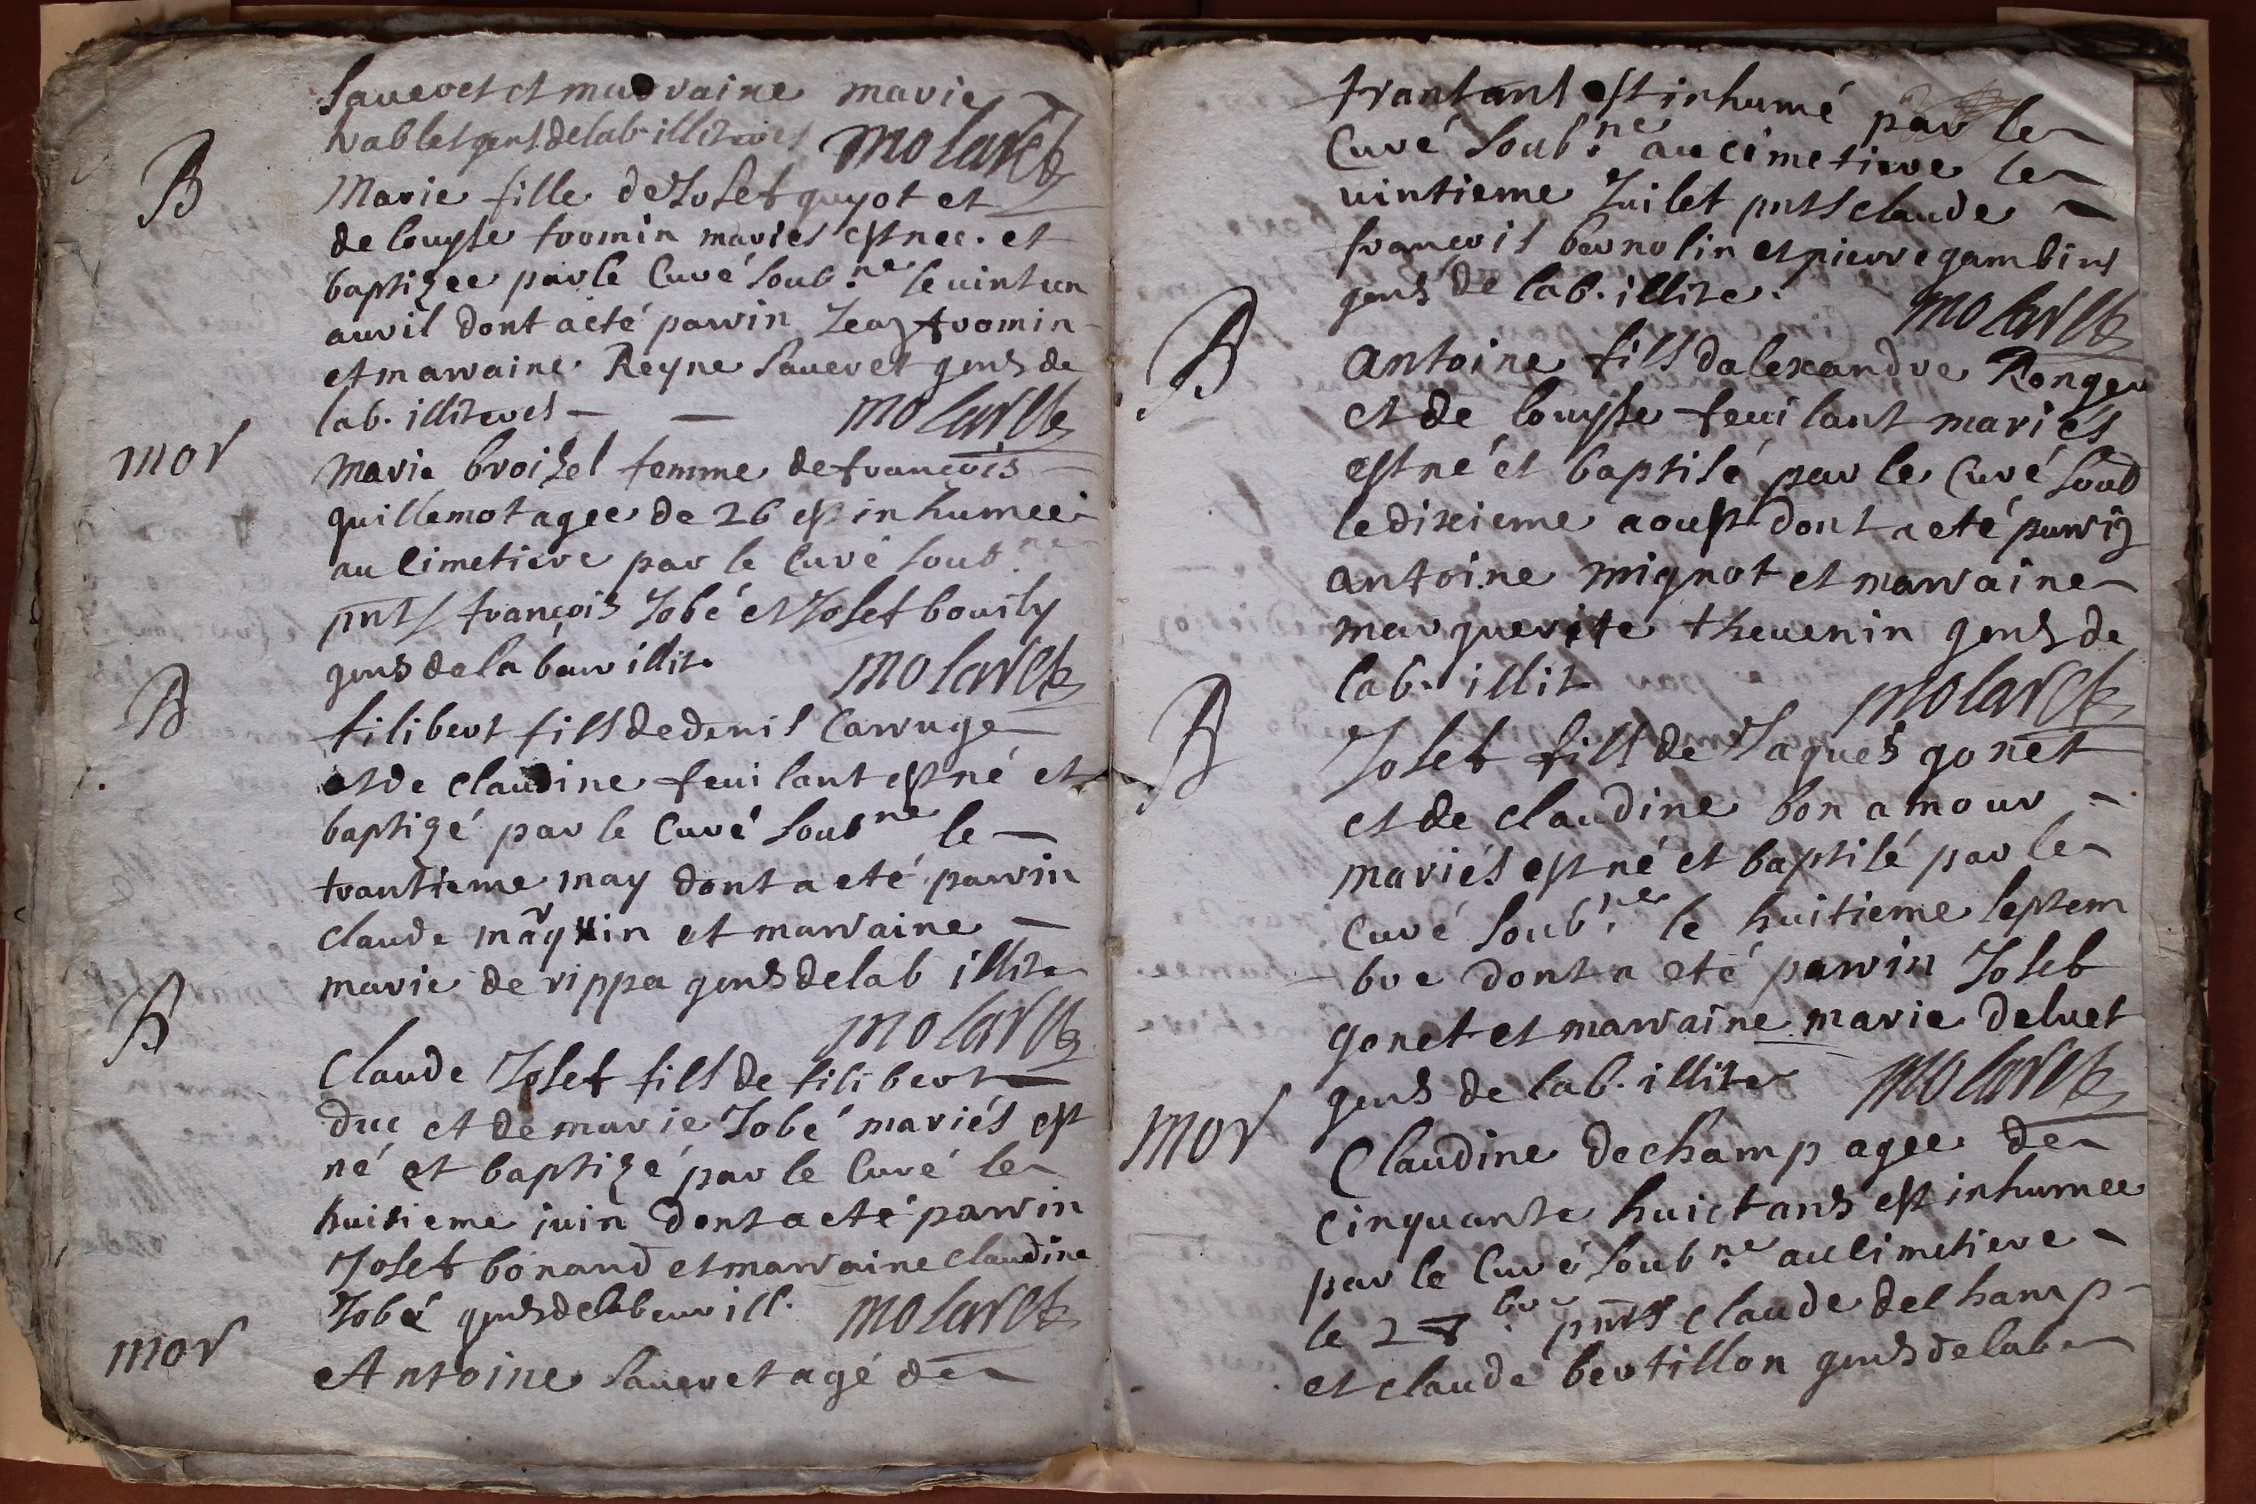 Saueret et marraine marie
gens de lab. illiteres Molaret
B
Marie fille de Josef guyot et
de louyse fromin mariés est nee. et
baptizee par le Curé soub.ne le uint un
auril dont a eté parrin Jean fromin
et marraine Reyne Saueret gens de
lab. illiteres — — Molaret
mor
Marie broisel femme de françois
guillemot agee de 26 est inhumee
au cimetiere par le Curé soub.ne
pnts françois Jobé et Josef bouily
gens de labeur illit. Molaret
B
filibert fils de denis Carruge
et de claudine feuilant est né et
baptizé par le Curé soub.ne le
trantieme may dont a eté parrin
claude marquin et marraine
marie de rippa gens de lab illite
Molaret
B
Claude Josef fils de filibert
duc et de marie Jobé mariés est
né et baptizé par le Curé le
huitieme juin dont a eté parrin
Josef bonand et marraine claudine
Jobé gens de labeur ill. Molaret
mor
Antoine Saueret agé de
trant ans est inhumé par le
Curé soub.ne au cimetiere le
uintieme Juilet pnts claude
françois bernolin et pierre gambin
gens de lab. illite. Molaret
B
Antoine fils dalexandre Ronger
et de louyse feuilant mariés
est né et baptisé par le Curé soub
le dixieme aoust dont a eté parrin
antoine mignot et marraine
marguerite theuenin gens de
lab. illit. Molaret
B
Josef fils de Jaques gonet
et de claudine bon amour
mariés est né et baptisé par le
Curé soub.ne le huitieme septem
bre dont a eté parrin Josef
gonet et marraine marie deluet
gens de lab. illite Molaret
mor
Claudine dechamp agee de
cinquante huict ans est inhumee
par le Curé soub.ne au cimetiere
le 2 8.bre pnts claude deschamp
et claude bertillon gens de labe